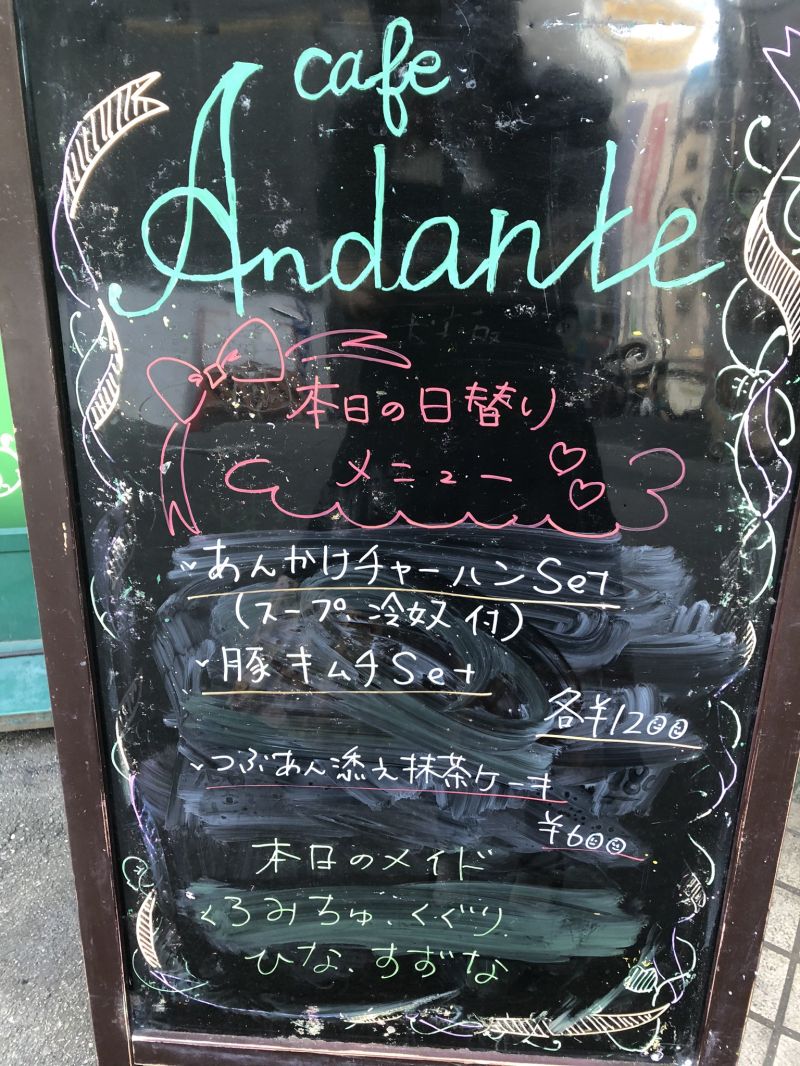 cafe
Andante
本日の日替り
メニュー
あんかけチャーハンSet
(スープ、冷奴付)
豚キムチSet
各¥1200
つぶあん添え抹茶ケーキ
¥600
本日のメイド
くろみちゅ、くぐり、
ひな、すずな